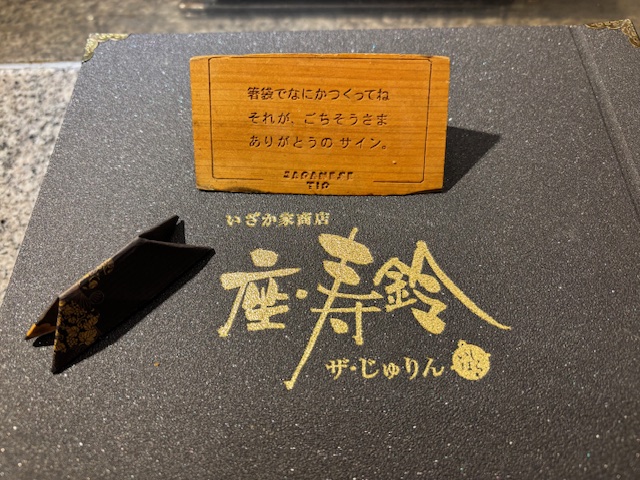 箸袋でなにかつくってね
それが、ごちそうさま
ありがとうの サイン。
JAPANESE
TIP
いざか家商店
座・寿鈴
ザ・じゅりん